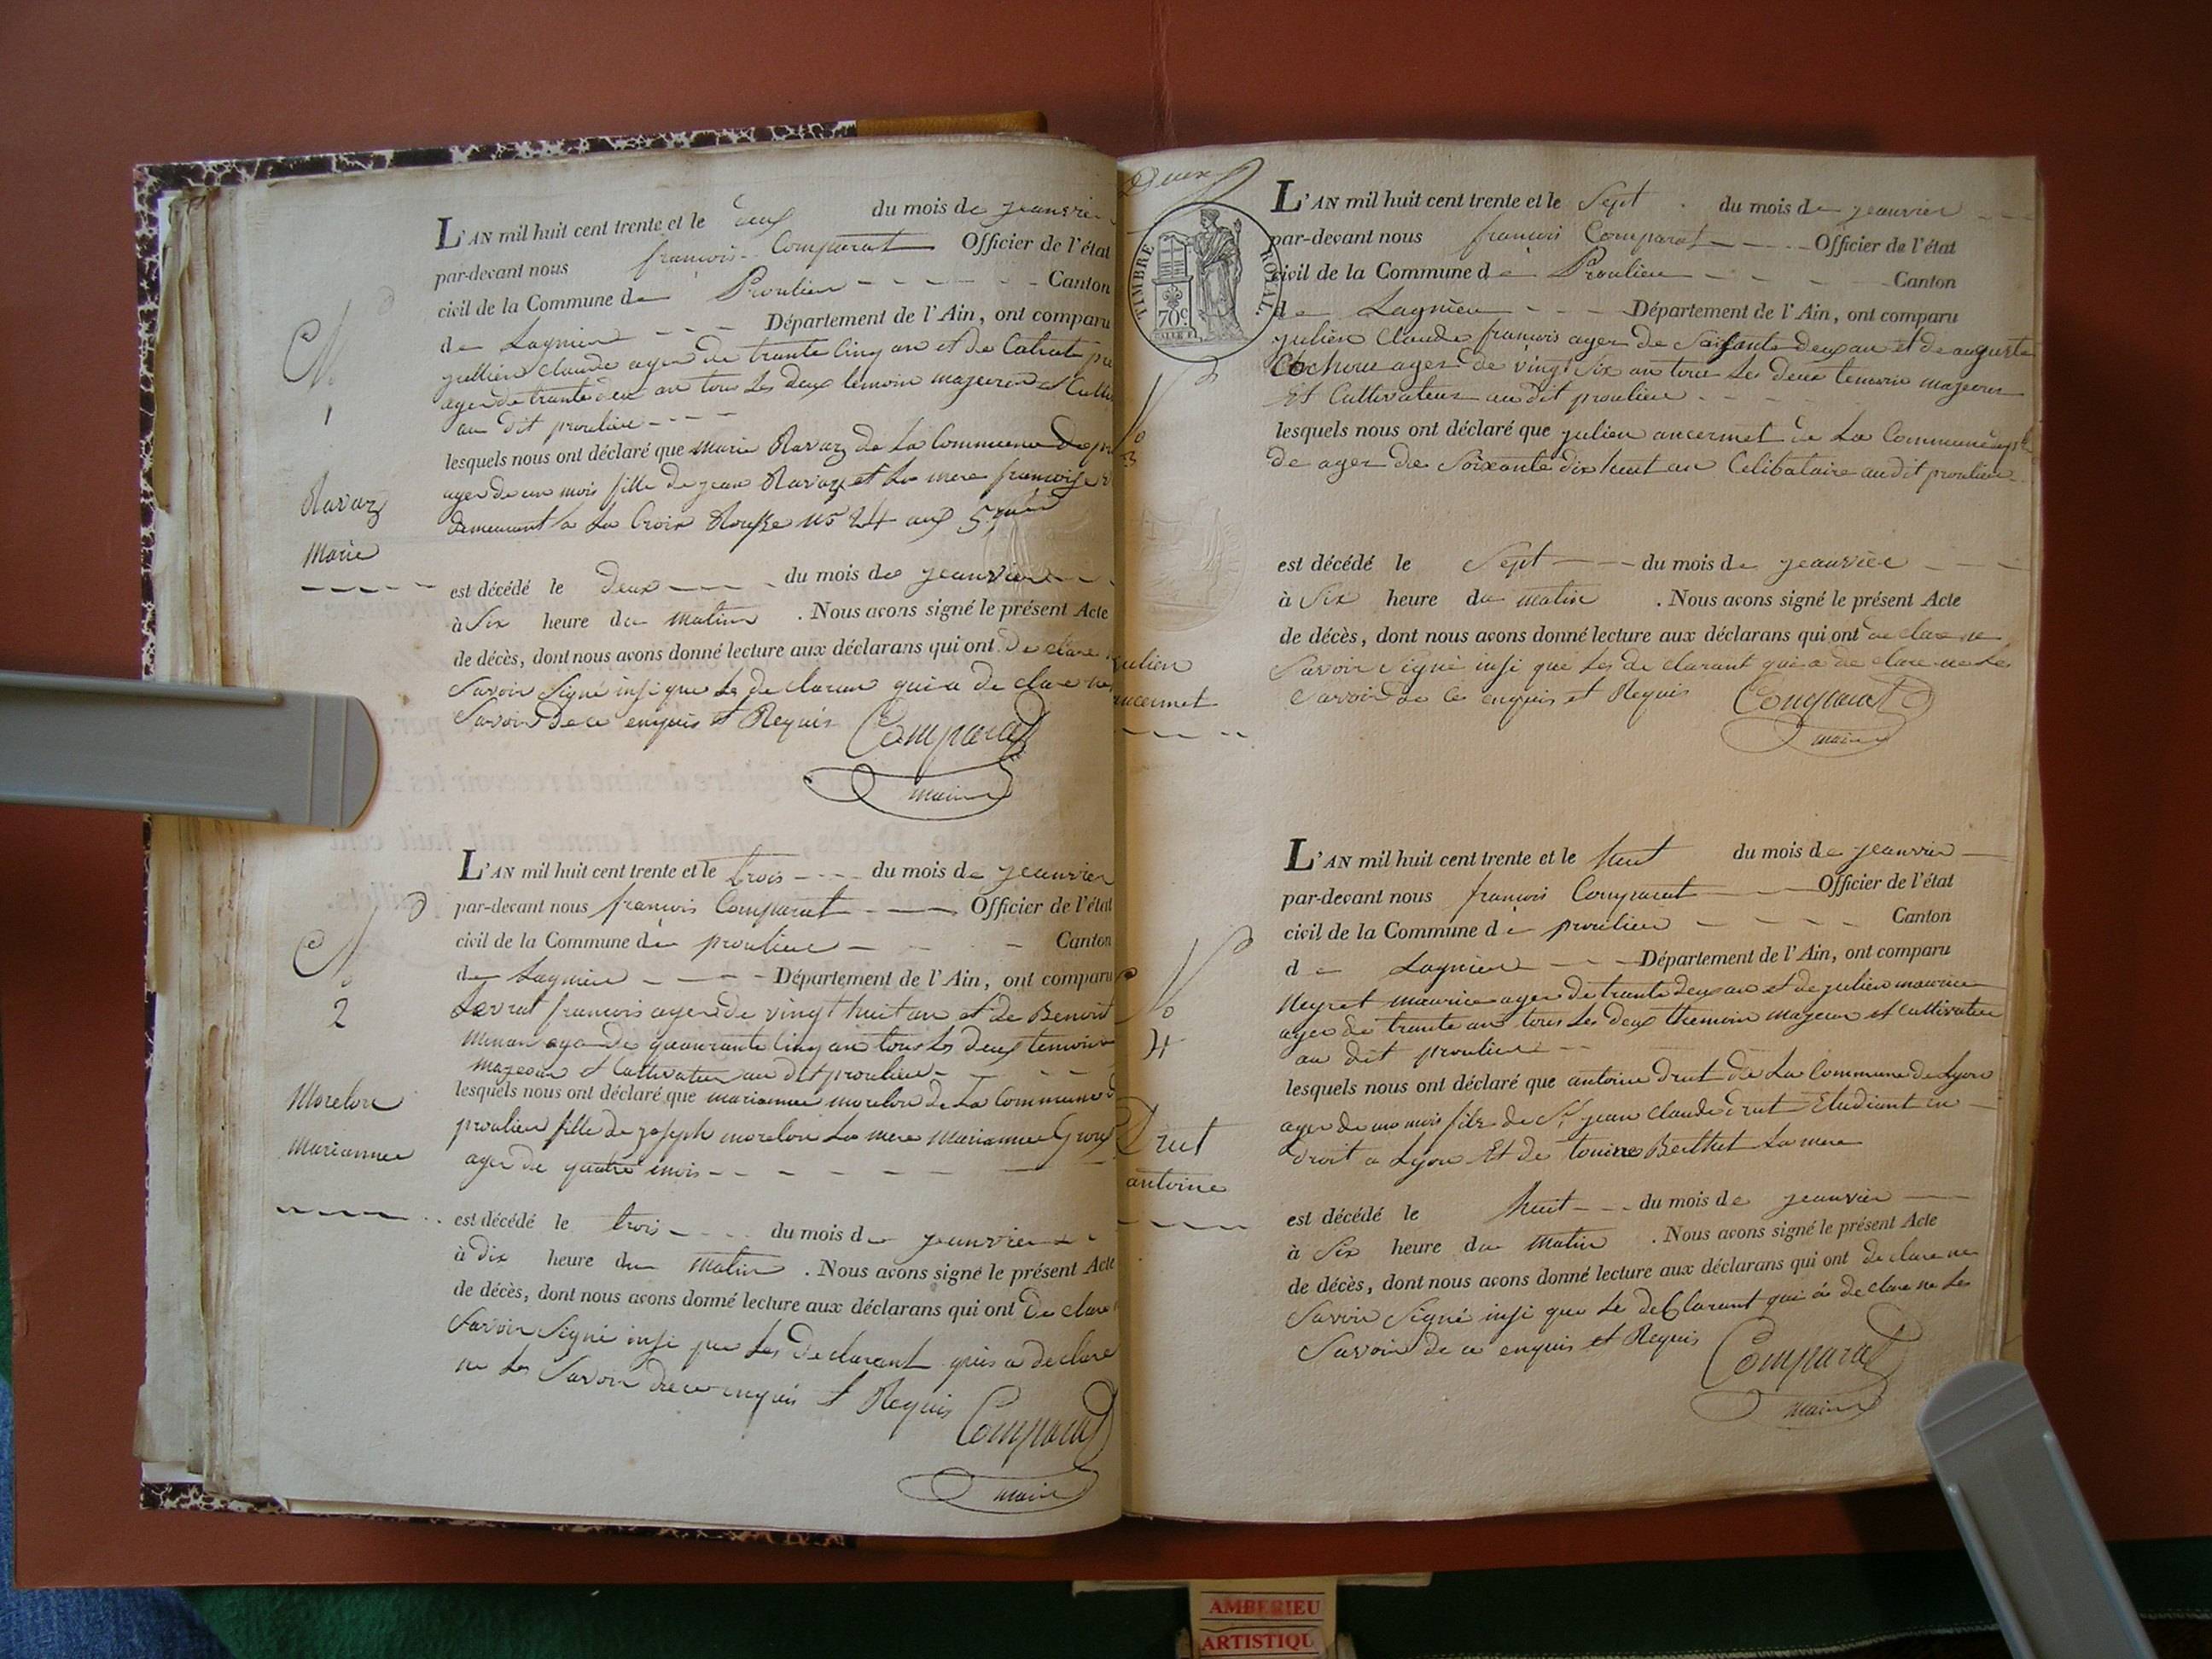 L'AN mil huit cent trente et le deux du mois de jeanvier
par-devant nous francois Comparat Officier de l'état
civil de la Commune de Proulieu Canton
de Lagnieu Département de l'Ain, ont comparu
jullien claude ager de trante cinq an et de
ager de trante deux an tous les deux temoin majeures et Culti
au dit proulieu
lesquels nous ont déclaré que marie Ravaz de La Commune de pr
ager de un mois fille de jean Ravaz et La mere francoise
demeurant a La Croix Rousse No 24 aux
est décédé le deux du mois de jeanvier
à Six heure du matin . Nous avons signé le présent Acte
de décès, dont nous avons donné lecture aux déclarans qui ont Declare
Savoir Signé insi que Le de claran qui a de clare ne
Savoir De ce enquis et Requis Comparat
maire
No
1
Ravaz
Marie
L'AN mil huit cent trente et le trois du mois de jeanvier
par-devant nous francois Comparat Officier de l'état
civil de la Commune de proulieu Canton
de Lagnieu Département de l'Ain, ont comparu
Levrat francois ager de vingt huit an et de Benoit
ager de quaurante cinq an tous Les deux temoin
majeur et Cultivateur au dit proulieu
lesquels nous ont déclaré que marianne morelon de La Commune d
proulieu fille de joseph morelon La mere marianne
ager de quatre mois
est décédé le trois du mois de jeanvier
à dix heure du matin . Nous avons signé le présent Acte
de décès, dont nous avons donné lecture aux déclarans qui ont De clare
Savoir Signé insi que Les De clarant quis a declare
ne Les Savoir de ce enquis et Requis Comparat
maire
No
2
Morelon
Marianne
Deux
TIMBRE ROYAL
70c
L'AN mil huit cent trente et le Sept du mois de jeanvier
par-devant nous francois Comparat Officier de l'état
civil de la Commune de Proulieu Canton
de Lagnieu Département de l'Ain, ont comparu
julien Claude francois ager de Soissante deux an et de auguste
Cochonu ager de vingt Six an tous Les deux temoin majeures
Et Cultivateur au dit proulieu
lesquels nous ont déclaré que julien ancermet de La Commune
de ager de Soixante dix huit an Celibataire au dit proulieu
est décédé le Sept du mois de jeanvier
à Six heure du matin . Nous avons signé le présent Acte
de décès, dont nous avons donné lecture aux déclarans qui ont de clare ne
Savoir signé insi que Les de clarant qui a de clare ne Le
Savoir De ce enquis et Requis Comparat
maire
No
3
julien
ancermet
L'AN mil huit cent trente et le huit du mois de jeanvier
par-devant nous francois Comparat Officier de l'état
civil de la Commune de proulieu Canton
de Lagnieu Département de l'Ain, ont comparu
Neyret maurice ager de trante deux an et de julien maurice
ager de trante an tous Les deux themoin majeur et Cultivateur
au dit proulieu
lesquels nous ont déclaré que antoine drut de La Commune de Lyon
ager de un mois fils de Sr jean claude drut Etudiant en
droit a Lyon Et de Berthet La mere
est décédé le huit du mois de jeanvier
à Six heure du matin . Nous avons signé le présent Acte
de décès, dont nous avons donné lecture aux déclarans qui ont de clare ne
Savoir Signé insi que Le declarant qui a de clare ne Les
Savoir de ce enquis et Requis Comparat
maire
No
4
Drut
antoine
AMBERIEU
ARTISTIQU